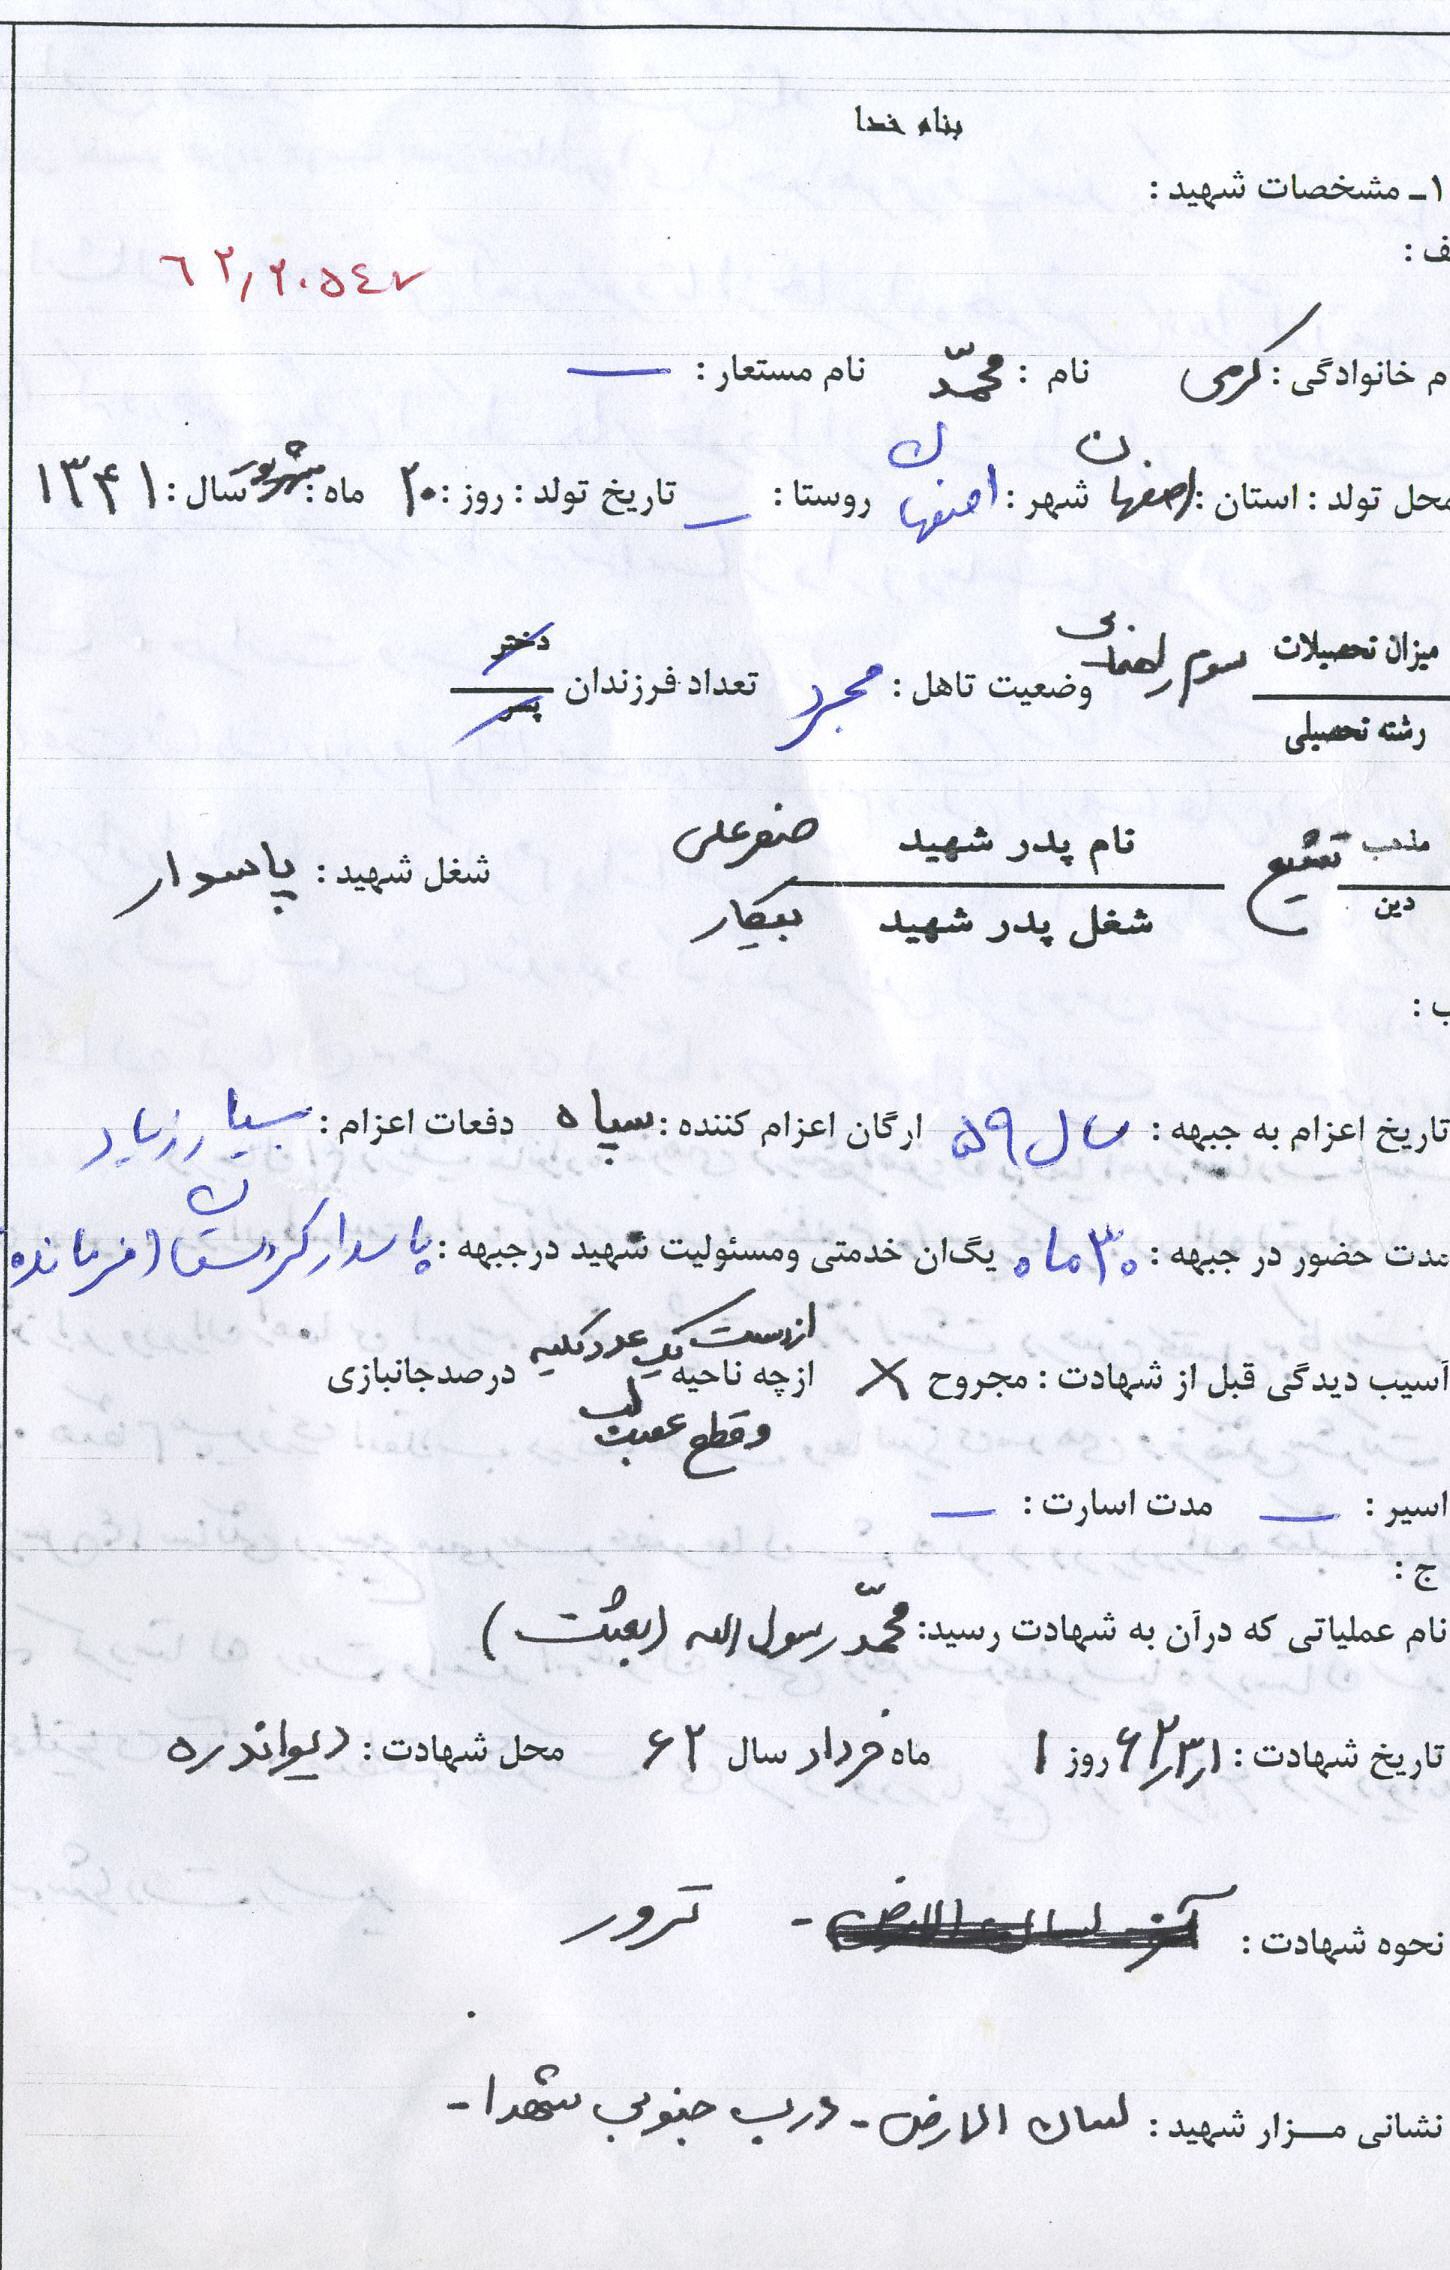 بنام خدا
۱ـ مشخصات شهید :
ف :
۶۲٫۲۰۵۴۷
م خانوادگی : کرمی نام : محمّد نام مستعار : ـــ
محل تولد : استان : اصفهان شهر : اصفهان روستا : ـــ تاریخ تولد : روز : ۲۰ ماه : شهریور سال : ۱۳۴۱
میزان تحصیلات سوم راهنمایی وضعیت تاهل : مجرد تعداد فرزندان دختر
رشته تحصیلی پسر
مذهب تشیع نام پدر شهید صفرعلی شغل شهید : پاسدار
دین شغل پدر شهید بیکار
ب :
تاریخ اعزام به جبهه : سال ۵۹ ارگان اعزام کننده : سپاه دفعات اعزام : بسیار زیاد
مدت حضور در جبهه : ۳۰ ماه یگان خدمتی ومسئولیت شهید درجبهه : پاسدار کردستان (فرمانده)
آسیب دیدگی قبل از شهادت : مجروح X ازچه ناحیه از دست یک عدد کلیه و قطع عصب درصدجانبازی
اسیر : ـــ مدت اسارت : ـــ
ج :
نام عملیاتی که درآن به شهادت رسید: محمّد رسول الله (بعثت)
تاریخ شهادت : ۶۲٫۳٫۱ روز ۱ ماه خرداد سال ۶۲ محل شهادت : دیواندره
نحوه شهادت : - ترور
نشانی مـزار شهید : لسان الارض - درب جنوبی شهدا -